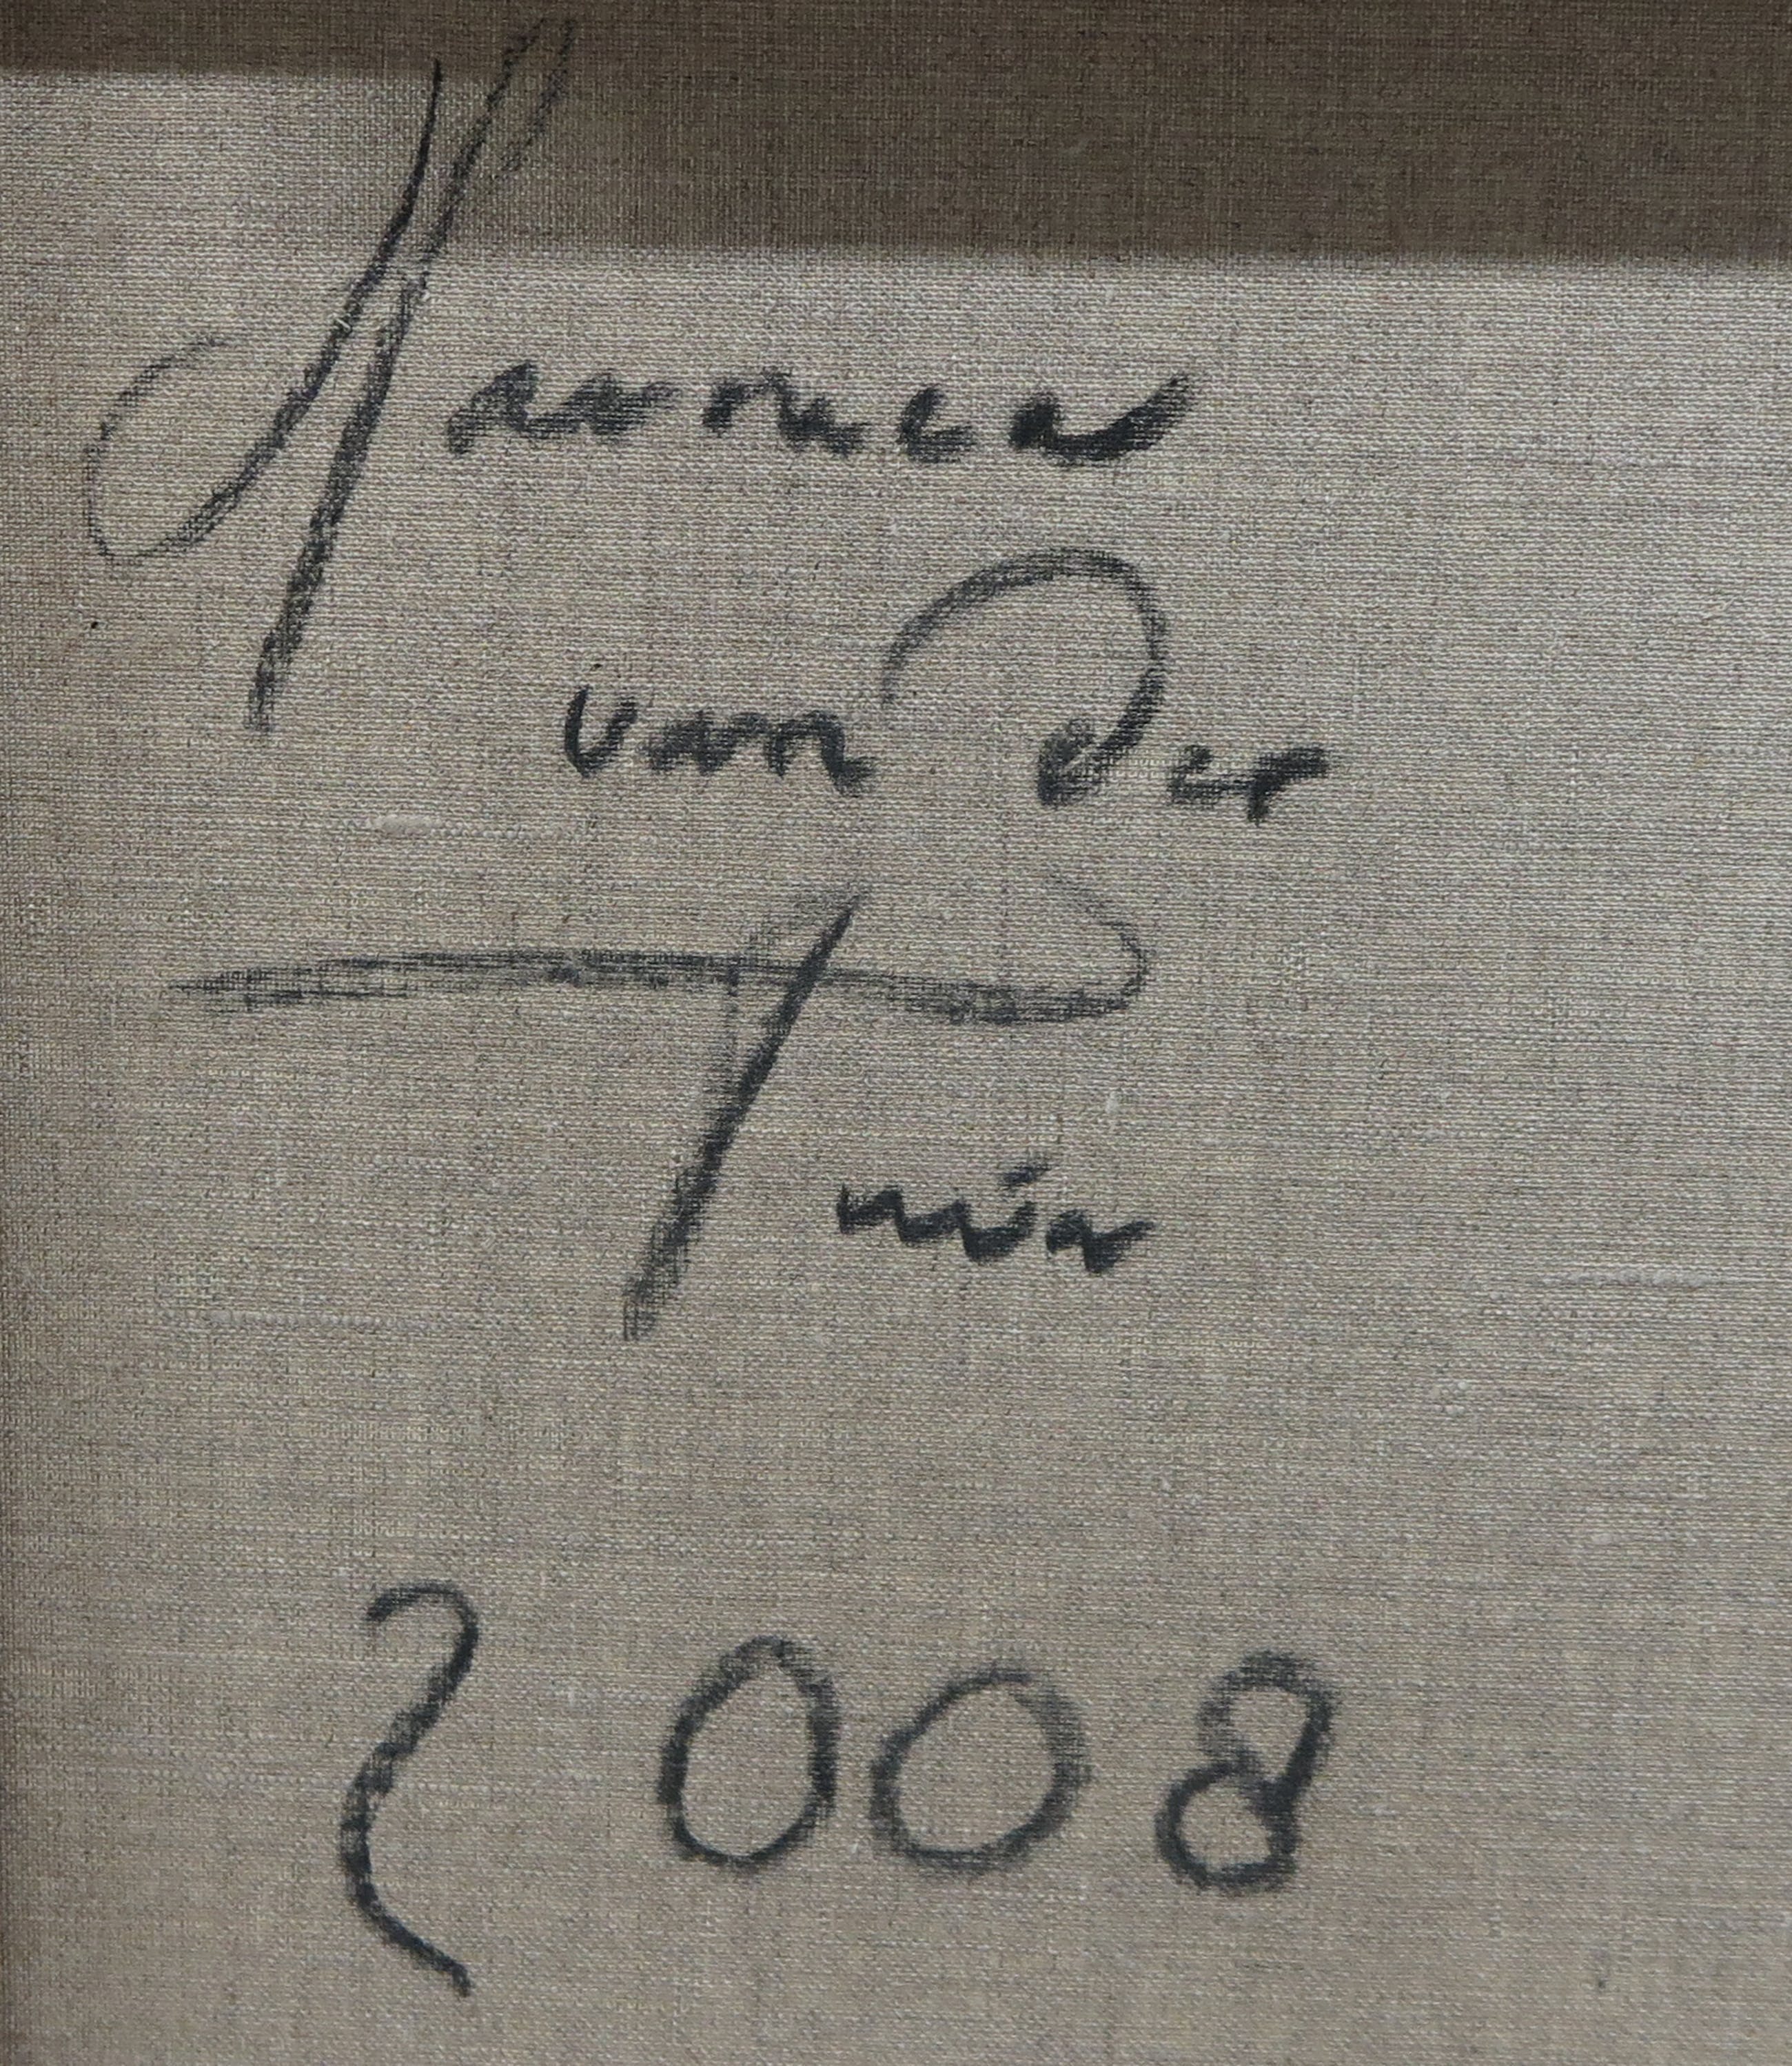 Harmen
van der
Tuin
2008